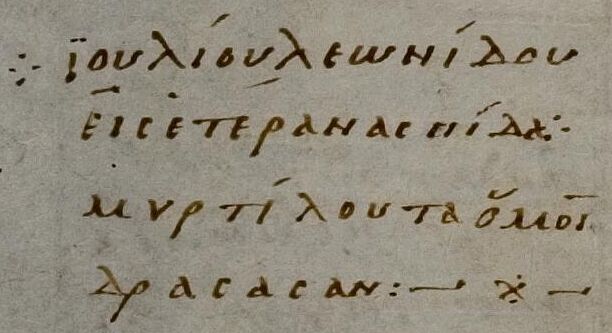 ἰουλίου λεωνίδου
εἰς ἑτέραν ἀσπίδα:
μυρτίλου τὰ ὅμοι
δράσασαν: